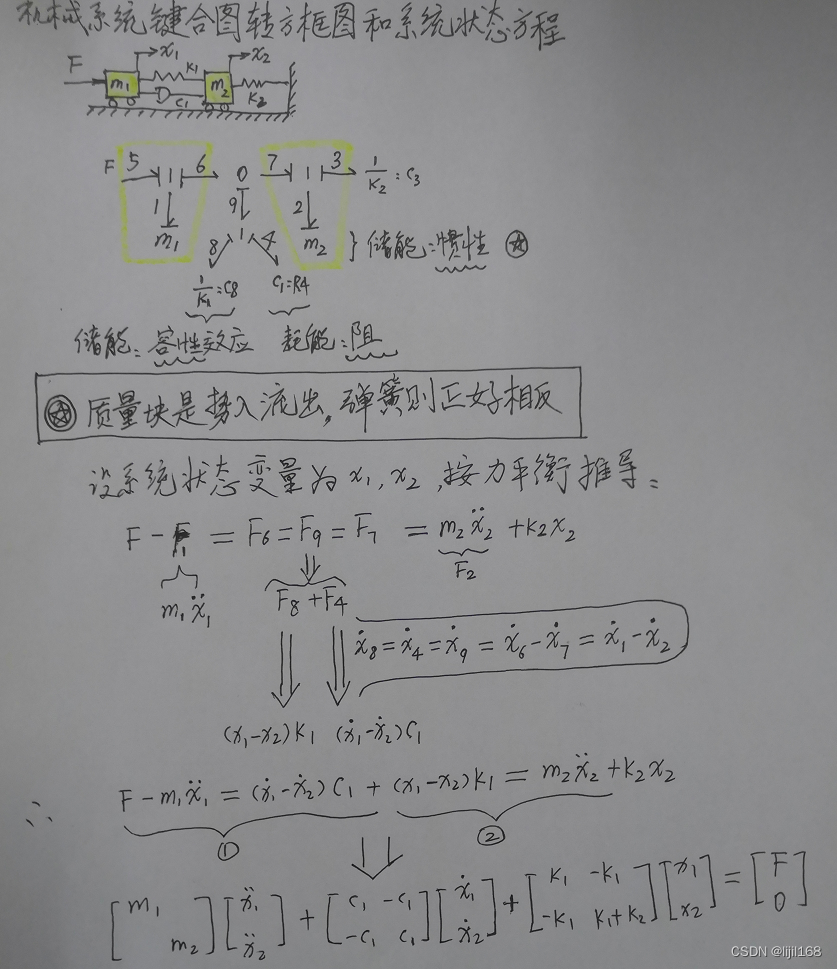 机械系统键合图转方框图和系统状态方程
F x₁ K₁ x₂
m₁ C₁ m₂ K₂
F 5 1 6 0 7 1 3 1/K₂ : C₃
1 9 2
m₁ 1 m₂ } 储能:惯性 ☆
8 4
1/K₁ = C8 C₁=R4
储能:容性效应 耗能:阻
☆ 质量块是势入流出,弹簧则正好相反
设系统状态变量为 x₁, x₂ ,按力平衡推导:
F - F₁ = F₆ = F₉ = F₇ = m₂ẍ₂ + K₂x₂
F₂
m₁ẍ₁ F₈ + F₄
ẋ₈ = ẋ₄ = ẋ₉ = ẋ₆ - ẋ₇ = ẋ₁ - ẋ₂
(x₁-x₂)K₁ (ẋ₁-ẋ₂)C₁
∴ F - m₁ẍ₁ = (ẋ₁-ẋ₂)C₁ + (x₁-x₂)K₁ = m₂ẍ₂ + K₂x₂
① ②
[m₁ ; m₂] [ẍ₁ ; ẍ₂] + [C₁ -C₁ ; -C₁ C₁] [ẋ₁ ; ẋ₂] + [K₁ -K₁ ; -K₁ K₁+K₂] [x₁ ; x₂] = [F ; 0]
CSDN @lijil168